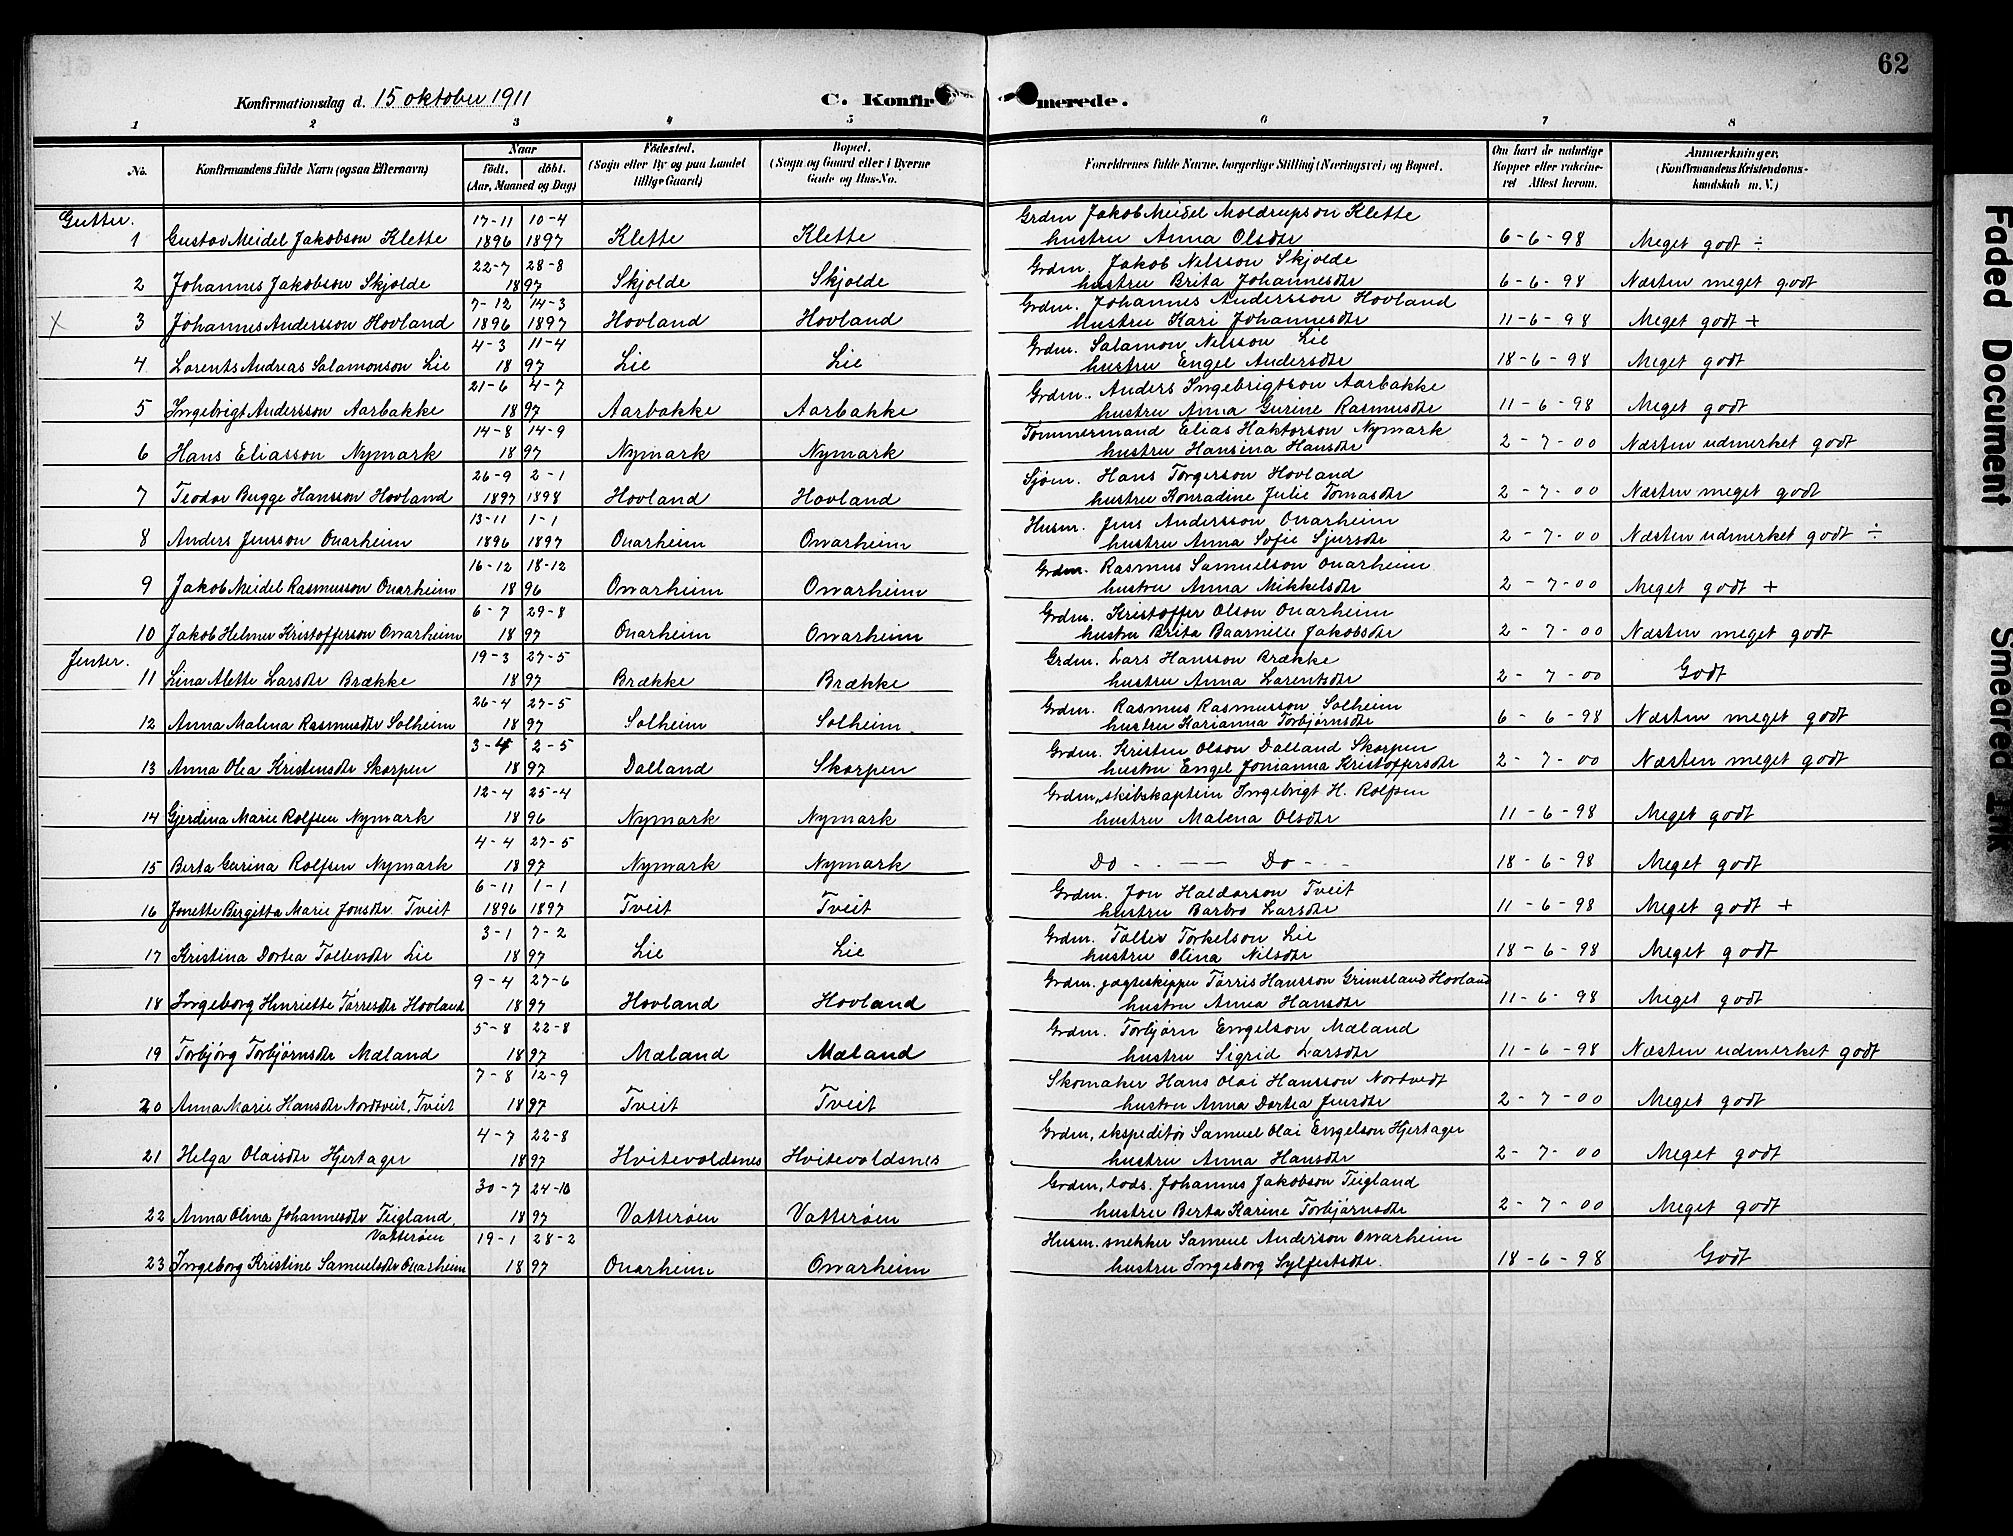 62
Konfirmationsdag d. 15 oktober 1911 C. Konfirmerede.
1 2 3 4 5 6 7 8
No. Konfirmandens fulde Navn (ogsaa Efternavn) Naar født. døbt. (Aar, Maaned og Dag) Fødested. (Sogn eller By og paa Landet tillige Gaard) Bopæl. (Sogn og Gaard eller i Byerne Gade og Hus-No. Forældrenes fulde Navne, borgerlige Stilling (Næringsvei) og Bopæl. Om havt de naturlige Kopper eller vakcineret Attest herom. Anmærkninger. (Konfirmandens Kristendomskundskab m. V.)
Gutter.
17-11 10-4 Grdm Jakob Meidel Moldrupson Klette
1 Gustav Meidel Jakobson Klette 1896 1897 Klette Klette hustru Anna Olsdtr 6-6-98 Meget godt ÷
22-7 28-8 Grdm. Jakob Nelsson Skjolde
2 Johannes Jakobson Skjolde 1897 Skjolde Skjolde hustru Brita Johannesdtr 6-6-98 Næsten meget godt
7-12 14-3 Grdm. Johannes Andersson Hovland
X 3 Johannes Andersson Hovland 1896 1897 Hovland Hovland hustru Kari Johannesdtr 11-6-98 Meget godt +
4-3 11-4 Grdm. Salamon Nelsson Lie
4 Lorents Andreas Salamonson Lie 1897 Lie Lie hustru Engel Andersdtr 18-6-98 Meget godt
21-6 4-7 Grdm. Anders Ingebrigtson Aarbakke
5 Ingebrigt Andersson Aarbakke 1897 Aarbakke Aarbakke hustru Anna Gurine Rasmusdtr 11-6-98 Meget godt
14-8 14-9 Tømmermand Elias Haktorson Nymark
6 Hans Eliasson Nymark 1897 Nymark Nymark hustru Hansina Hansdtr 2-7-00 Næsten udmerket godt
26-9 2-1 Sjøm. Hans Torgerson Hovland
7 Teodor Bugge Hansson Hovland 1897 1898 Hovland Hovland hustru Konradine Julie Tomasdtr 2-7-00 Næsten meget godt
13-11 1-1 Husm. Jens Andersson Onarheim
8 Anders Jensson Onarheim 1896 1897 Onarheim Onarheim hustru Anna Sofie Sjursdtr 2-7-00 Næsten udmerket godt ÷
16-12 18-12 Grdm. Rasmus Samuelson Onarheim
9 Jakob Meidel Rasmusson Onarheim 1896 Onarheim Onarheim hustru Anna Mikkelsdtr 2-7-00 Meget godt +
6-7 29-8 Grdm. Kristoffer Olson Onarheim
10 Jakob Helmer Kristofferson Onarheim 1897 Onarheim Onarheim hustru Brita Baarnille Jakobsdtr 2-7-00 Næsten meget godt
Jenter.
19-3 27-5 Grdm. Lars Hansson Brække
11 Lina Alette Larsdtr Brække 1897 Brække Brække hustru Anna Larentsdtr 2-7-00 Godt
26-4 27-5 Grdm. Rasmus Rasmusson Solheim
12 Anna Malena Rasmusdtr Solheim 1897 Solheim Solheim hustru Karianna Torbjørnsdtr 6-6-98 Næsten meget godt
3-4 2-5 Grdm. Kristen Olson Dalland Skorpen
13 Anna Olea Kristensdtr Skorpen 1897 Dalland Skorpen hustru Engel Jonianna Kristoffersdtr 2-7-00 Næsten meget godt
12-4 25-4 Grdm., skibskaptein Ingebrigt H. Rolfsen
14 Gjerdina Marie Rolfsen Nymark 1896 Nymark Nymark hustru Malena Olsdtr 11-6-98 Meget godt
4-4 27-5
15 Berta Gurina Rolfsen Nymark 1897 Nymark Nymark Do - - — — Do - - - 18-6-98 Meget godt
6-11 1-1 Grdm. Jon Haldorson Tveit
16 Jonette Birgitta Marie Jonsdtr Tveit 1896 1897 Tveit Tveit hustru Barbro Larsdtr 11-6-98 Meget godt +
3-1 7-2 Grdm. Tollev Torkelson Lie
17 Kristina Dortea Tollevsdtr Lie 1897 Lie Lie hustru Olina Nilsdtr 18-6-98 Meget godt
9-4 27-6 Grdm. jægteskipper Tørris Hansson Grimsland Hovland
18 Ingeborg Henriette Tørresdtr Hovland 1897 Hovland Hovland hustru Anna Hansdtr 11-6-98 Meget godt
5-8 22-8 Grdm. Torbjørn Engelson Mæland
19 Torbjørg Torbjørnsdtr Mæland 1897 Mæland Mæland hustru Sigrid Larsdtr 11-6-98 Næsten udmerket godt
7-8 12-9 Skomaker Hans Olai Hansson Nortvedt
20 Anna Marie Hansdtr Nordtveit, Tveit 1897 Tveit Tveit hustru Anna Dortea Jensdtr 2-7-00 Meget godt
4-7 22-8 Grdm, ekspeditør Samuel Olai Engelson Hjertager
21 Helga Olaisdtr Hjertager 1897 Hvitevoldsnes Hvitevoldsnes hustru Anna Hansdtr 2-7-00 Meget godt
30-7 24-10 Grdm, lods. Johannes Jakobson Teigland
22 Anna Olina Johannesdtr Teigland, 1897 Vatterøen Vatterøen hustru Berta Karine Torbjørnsdtr 2-7-00 Meget godt
Vatterøen 19-1 28-2 Husm. snekker Samuel Anderson Onarheim
23 Ingeborg Kristine Samuelsdtr Onarheim 1897 Onarheim Onarheim hustru Ingeborg Sylfestsdtr. 18-6-98 Godt
Faded Document
Smeared Ink